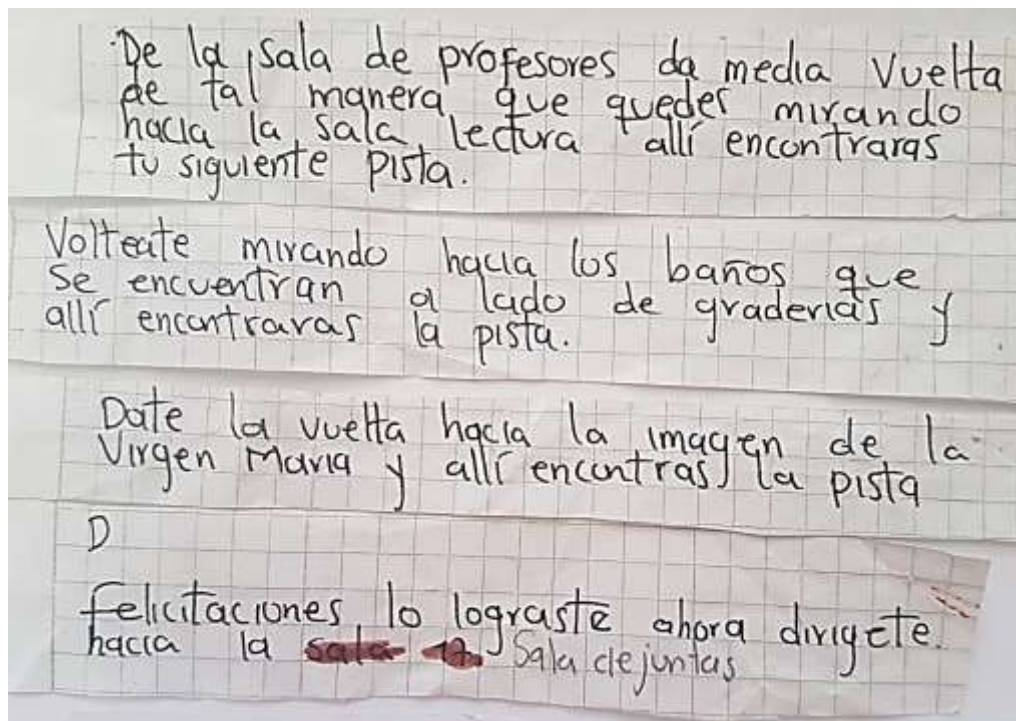 De la sala de profesores da media vuelta
de tal manera que quedes mirando
hacia la sala lectura allí encontraras
tu siguiente pista.
Volteate mirando hacia los baños que
se encuentran a lado de graderias y
allí encontraras la pista.
Date la vuelta hacia la imagen de la
Virgen Maria y allí encontras la pista
D
felicitaciones lo lograste ahora dirigete.
hacia la sala 17. Sala de juntas